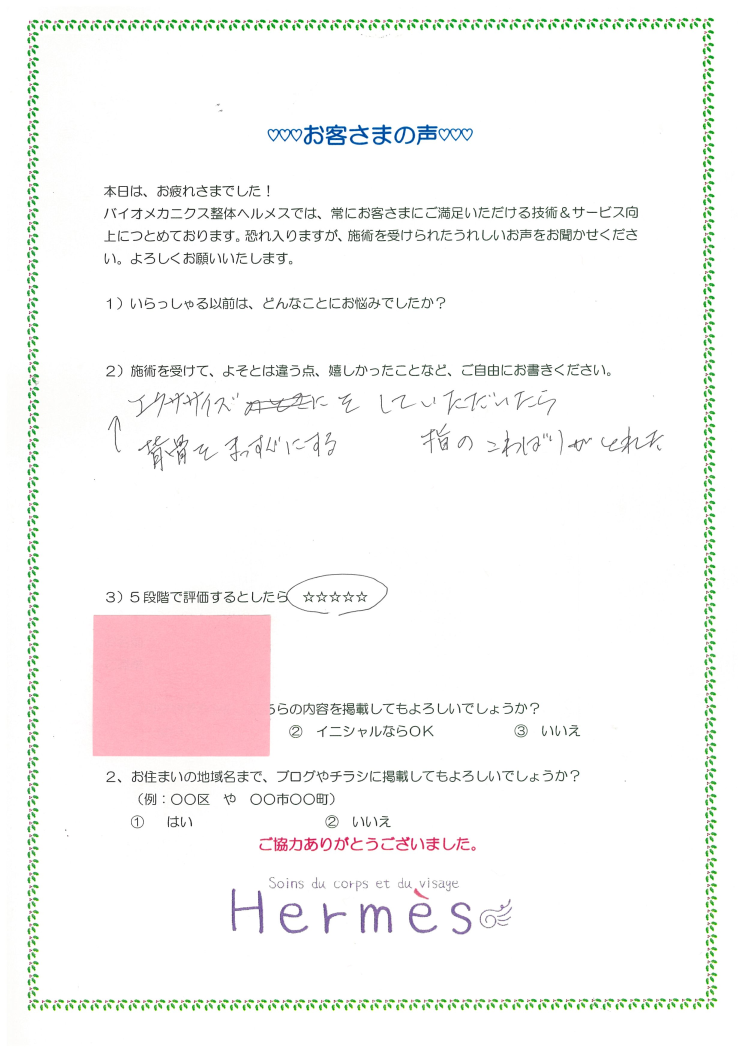 ♡♡♡お客さまの声♡♡♡
本日は、お疲れさまでした！
バイオメカニクス整体ヘルメスでは、常にお客さまにご満足いただける技術＆サービス向
上につとめております。恐れ入りますが、施術を受けられたうれしいお声をお聞かせくださ
い。よろしくお願いいたします。
１）いらっしゃる以前は、どんなことにお悩みでしたか？
２）施術を受けて、よそとは違う点、嬉しかったことなど、ご自由にお書きください。
エクササイズ をしていただいたら
↑背骨をまっすぐにする 指のこわばりがとれた
３）５段階で評価するとしたら ☆☆☆☆☆
らの内容を掲載してもよろしいでしょうか？
② イニシャルならＯＫ ③ いいえ
２、お住まいの地域名まで、ブログやチラシに掲載してもよろしいでしょうか？
（例：〇〇区 や 〇〇市〇〇町）
① はい ② いいえ
ご協力ありがとうございました。
Soins du corps et du visage
Hermès